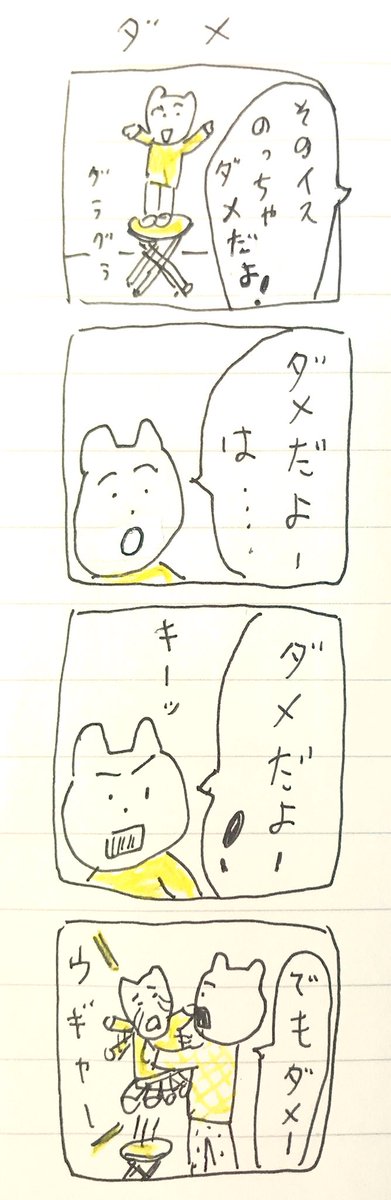 ダメ
そのイス
のっちゃ
ダメだよ!
グラグラ
ダメだよー
は‥‥
ダメだよー
!
キーッ
でもダメー
ウギャー